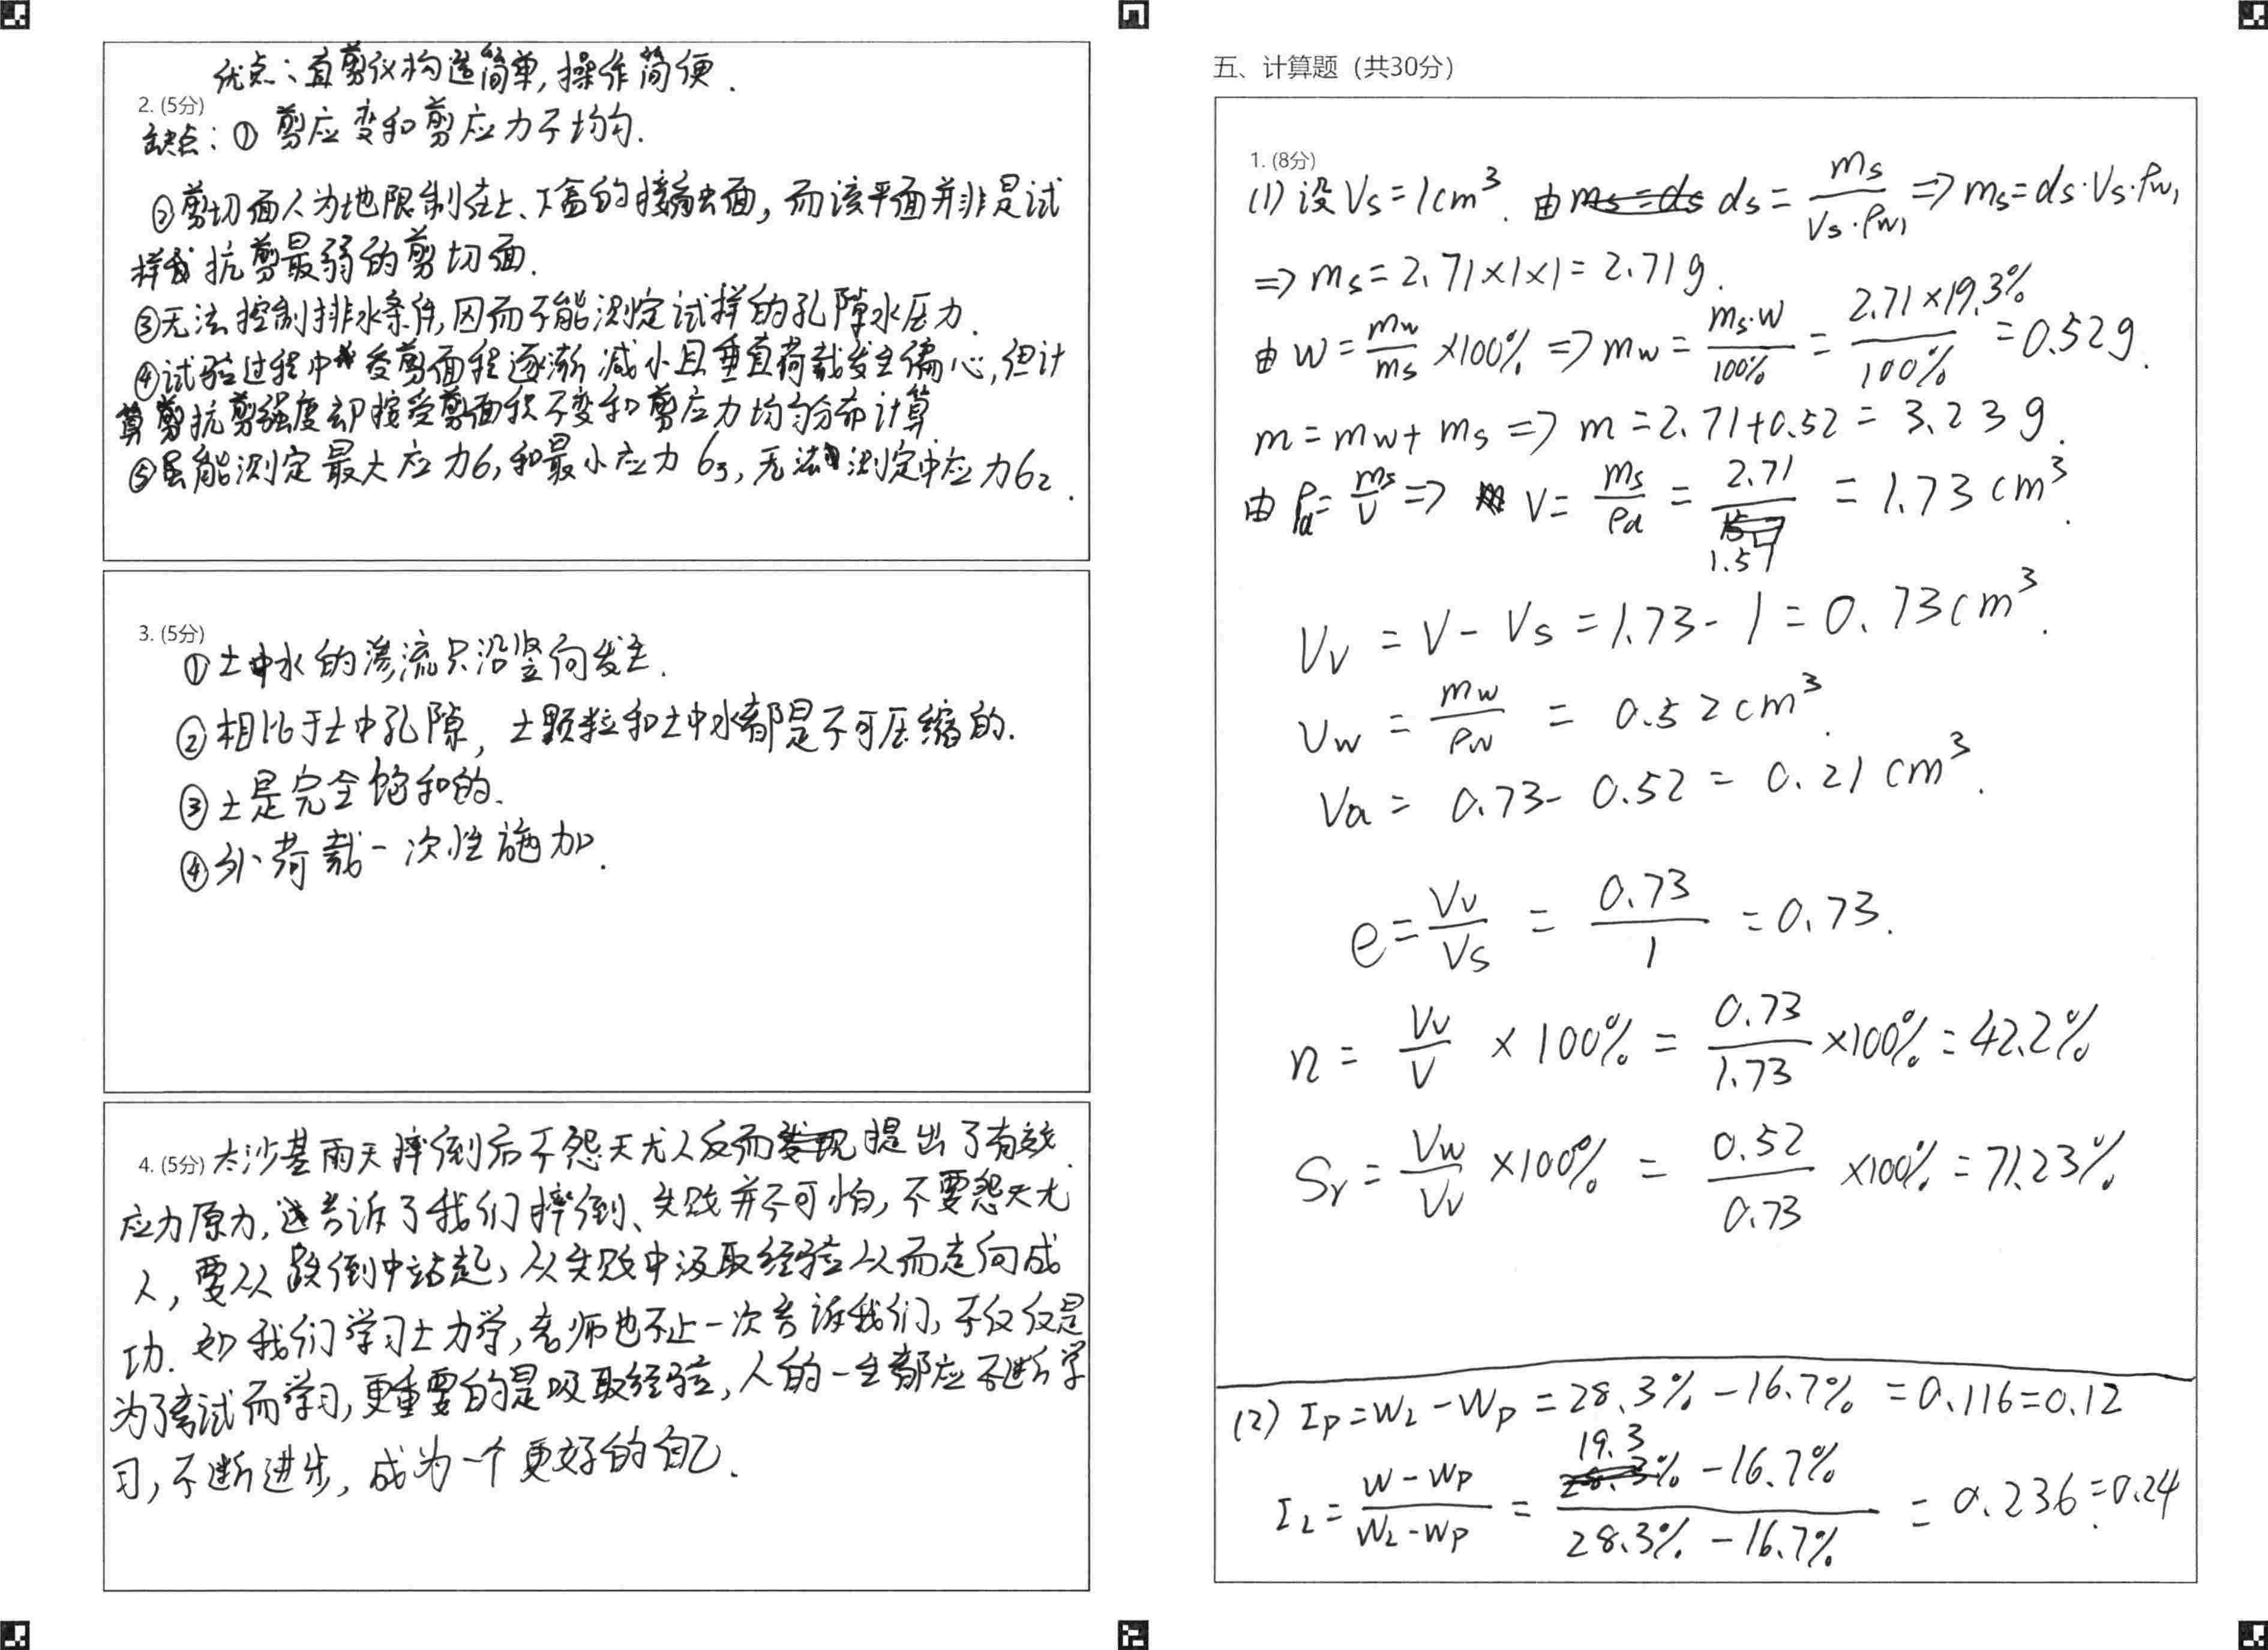 优点：直剪仪构造简单,操作简便.
2. (5分)
缺点：① 剪应变和剪应力不均匀.
②剪切面人为地限制在上、下盒的接触面，而该平面并非是试
样 抗剪最弱的剪切面.
③无法控制排水条件,因而不能测定试样的孔隙水压力.
④试验过程中 受剪面积逐渐减小且垂直荷载发生偏心,但计
算 抗剪强度却按受剪面积不变和剪应力均匀分布计算
⑤虽能测定最大应力σ₁和最小应力σ₃,无法测定中应力σ₂.
3. (5分)
①土中水的渗流只沿竖向发生.
②相比于土中孔隙，土颗粒和土中水都是不可压缩的.
③土是完全饱和的.
④外荷载一次性施加.
4. (5分) 太沙基雨天摔倒后不怨天尤人反而 提出了有效
应力原力,这告诉了我们摔倒、失败并不可怕,不要怨天尤
人,要从跌倒中站起,从失败中汲取经验从而走向成
功. 我们学习土力学,老师也不止一次告诉我们,不仅仅是
为了考试而学习,更重要的是吸取经验,人的一生都应不断学
习,不断进步,成为一个更好的自己.
五、计算题（共30分）
1. (8分)
(1) 设 Vs=1cm³. 由 ds = ms/(Vs·ρw₁) ⇒ ms=ds·Vs·ρw₁
⇒ ms=2.71×1×1=2.71g.
由 w = mw/ms ×100% ⇒ mw = ms·w/100% = 2.71×19.3%/100% = 0.52g.
m=mw+ms ⇒ m=2.71+0.52=3.23g.
由 ρd = ms/V ⇒ V = ms/ρd = 2.71/1.57 = 1.73cm³.
Vv = V-Vs = 1.73-1 = 0.73cm³.
Vw = mw/ρw = 0.52cm³.
Va = 0.73-0.52 = 0.21cm³.
e = Vv/Vs = 0.73/1 = 0.73.
n = Vv/V ×100% = 0.73/1.73 ×100% = 42.2%
Sr = Vw/Vv ×100% = 0.52/0.73 ×100% = 71.23%
(2) Ip=WL-Wp=28.3%-16.7%=0.116=0.12
IL = (W-Wp)/(WL-Wp) = (19.3%-16.7%)/(28.3%-16.7%) = 0.236=0.24